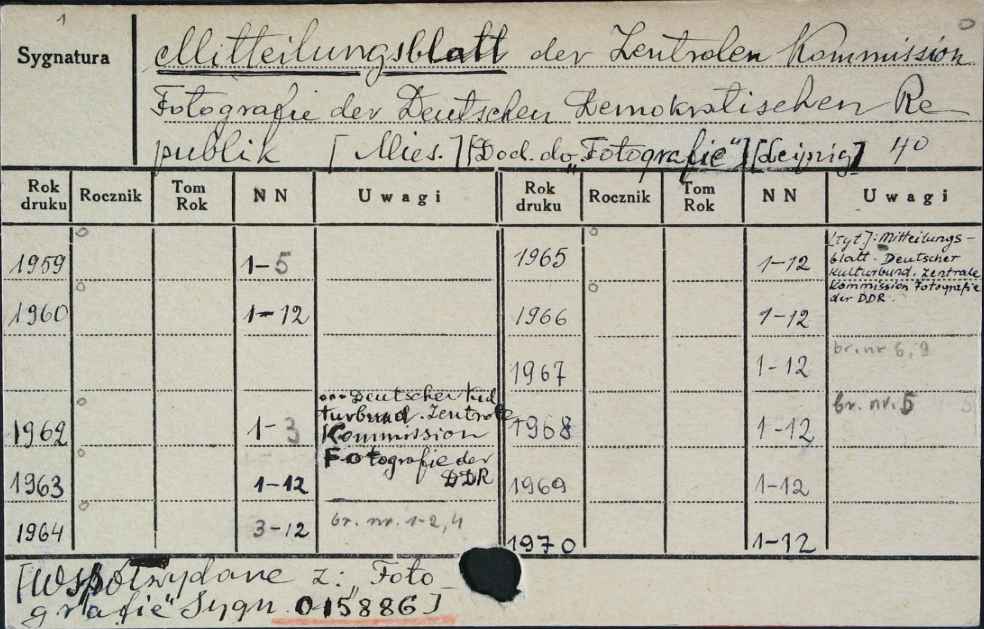 1
Sygnatura
Mitteilungsblatt der Zentralen Kommission
Fotografie der Deutschen Demokratischen Re
publik [Mies.] [Dod. do „Fotografie"] [Leipzig] 4o
Rok druku Rocznik Tom Rok NN Uwagi Rok druku Rocznik Tom Rok NN Uwagi
1959 1-5
1960 1-12
1962 1-3 ... Deutscher Kul
turbund. Zentrale
Kommission
Fotografie der
DDR
1963 1-12
1964 3-12 br. nr. 1-2, 4
1965 1-12 [tyt]: Mitteilungs-
blatt. Deutscher
Kulturbund. Zentrale
Kommission Fotografie
der DDR.
1966 1-12
1967 1-12 br. nr 6, 9
1968 1-12 br. nr. 5
1969 1-12
1970 1-12
[Współwydane z: „Foto
grafie" Sygn. 015886]